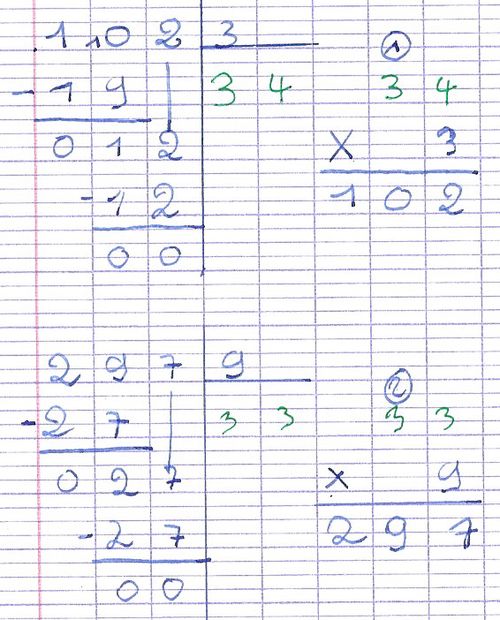 1 1 0 2 3
①
- 1 9 3 4 3 4
0 1 2 × 3
- 1 2 1 0 2
0 0
2 9 7 9
②
- 2 7 3 3 3 3
0 2 7 × 9
- 2 7 2 9 7
0 0